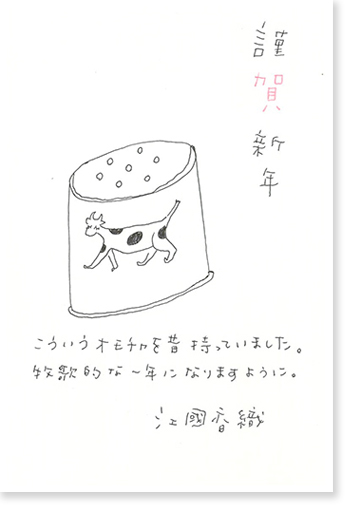 謹賀新年
こういうオモチャを昔持っていました。
牧歌的な一年になりますように。
江國香織